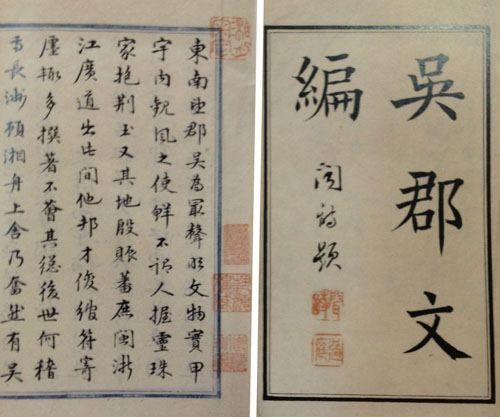 吳郡文
編
題
東南望郡吳為冣聲明文物實甲
宇內觀風之使鮮不謂人握靈珠
家抱荊玉又其地殷賑蕃庶閩浙
江廣道出此間他邦才俊綰符寄
廛輒多撰著不薈其總後世何稽
吾長洲顧湘舟上舍乃奮然有吳